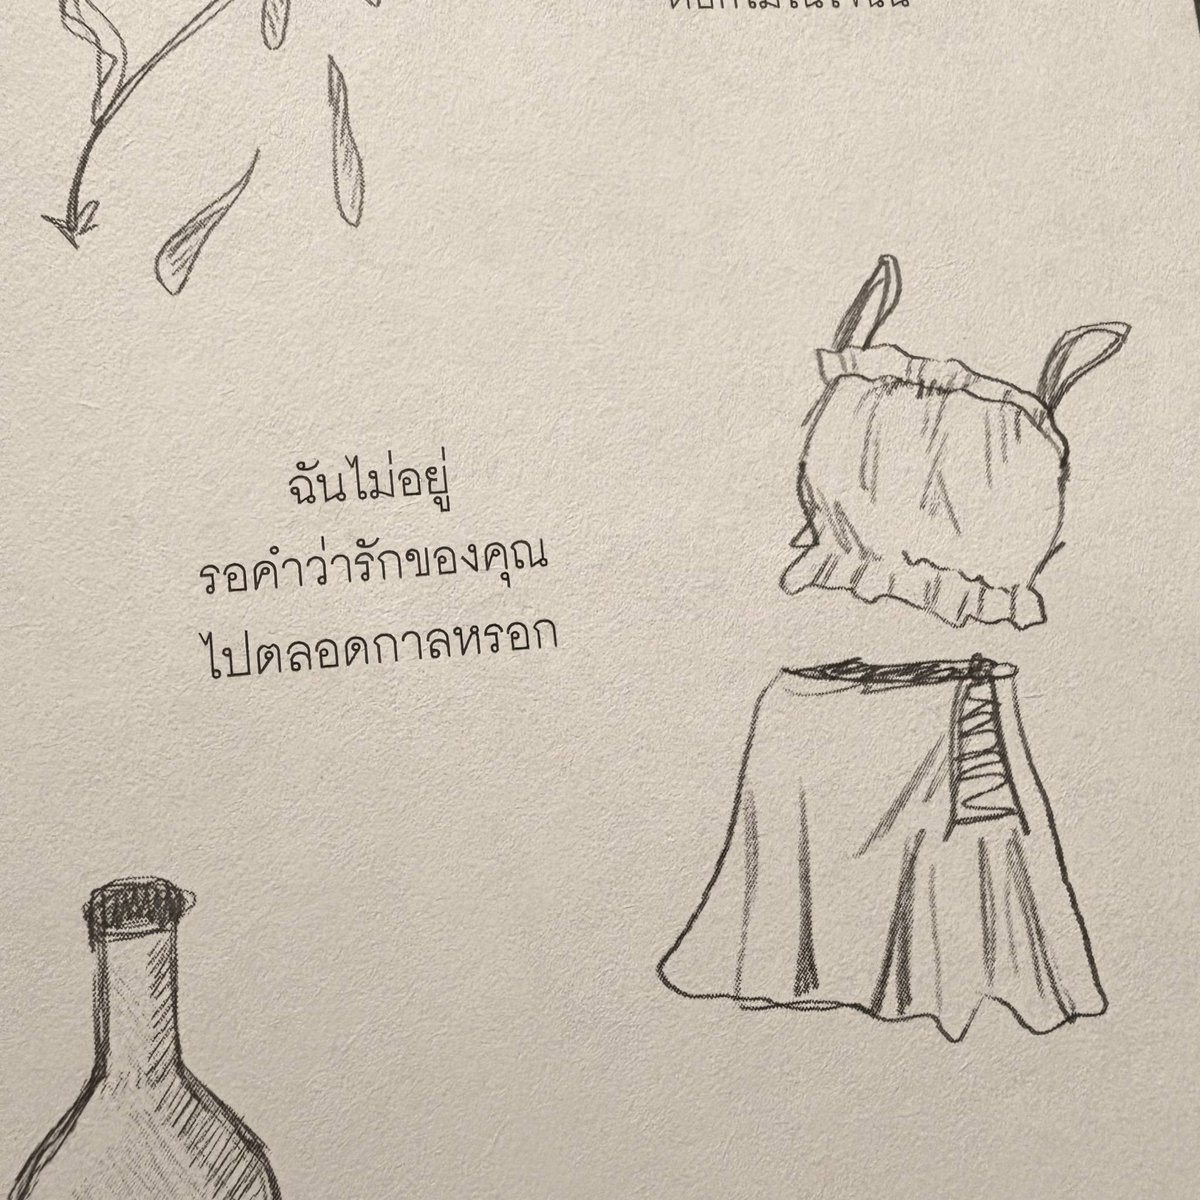 ฉันไม่อยู่
รอคำว่ารักของคุณ
ไปตลอดกาลหรอก